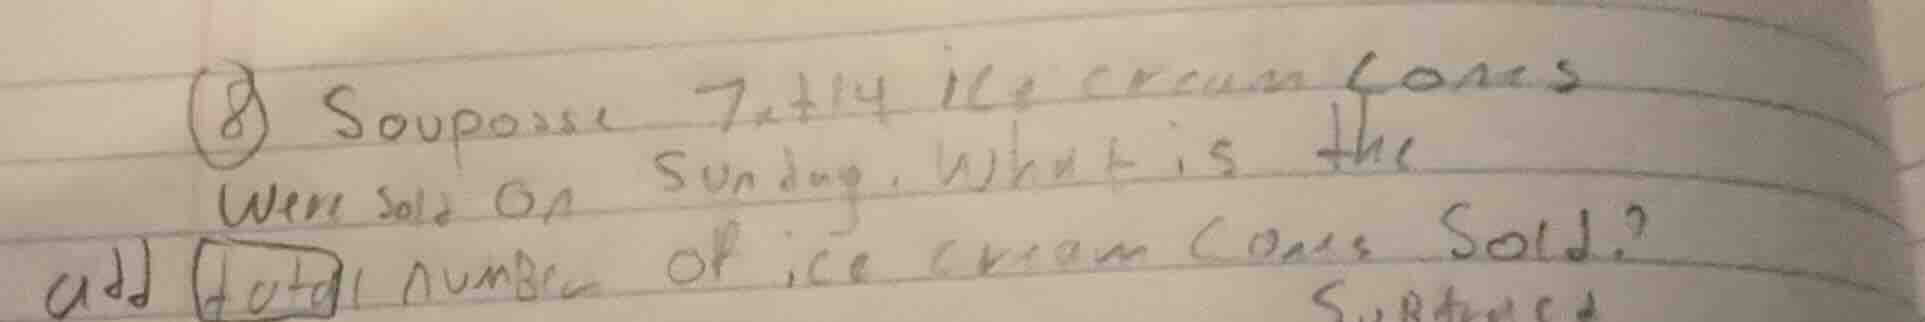 ⑧ Souposse 7,414 ice cream Cones
were sold on Sunday. What is the
add total number of ice cream Cones Sold?
Subtract